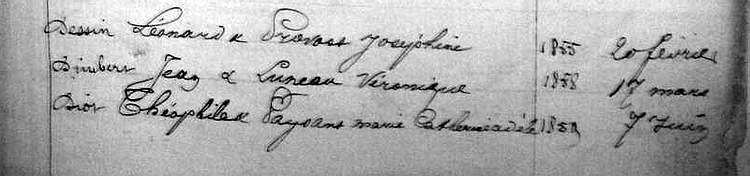 Dessin Léonard & Provost Joséphine 1855 20 février
Jean & Luneau Véronique 1858 17 mars
Dior Théophile & marie Catherine adèle 1859 7 Juin